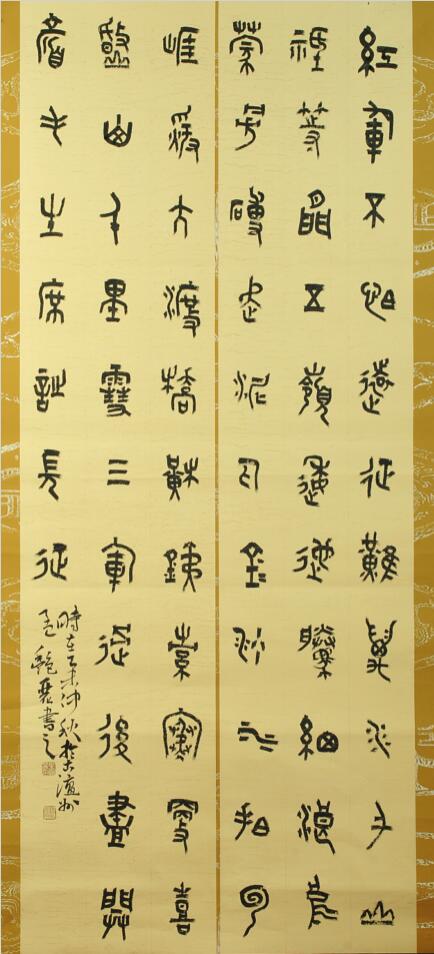 紅軍不怕遠征難萬水千山
祇等閒五嶺逶迤騰細浪烏
蒙磅礴走泥丸金沙水拍雲
崖暖大渡橋橫鐵索寒更喜
岷山千里雪三軍過後盡開
顏毛主席詩長征
時在乙未仲秋於古州
書之